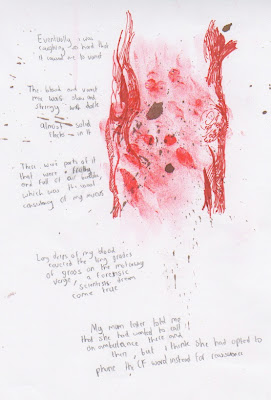 Eventually I was
coughing so hard that
it caused me to vomit
The blood and vomit
mix was slow and
stringy, with dark
almost solid
clots in it
There were parts of it
that were frothy
and full of air bubbles,
which was the usual
consistency of my mucus
Long drips of my blood
covered the long grasses
of grass on the motorway
verge, a forensic
scientists dream
come true
My mum later told me
that she had wanted to call
an ambulance there and
then, but I think she had opted to
phone the CF ward instead for